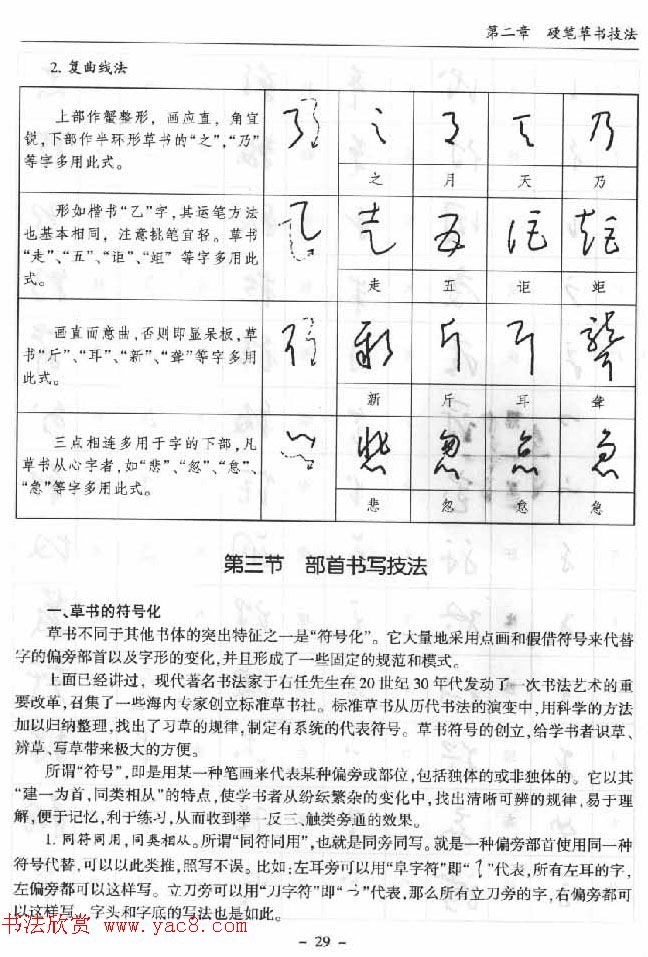 第二章 硬笔草书技法
2. 复曲线法
上部作蟹整形,画应直,角宜
锐,下部作半环形草书的“之”,“乃”
等字多用此式。
之 月 天 乃
形如楷书“乙”字,其运笔方法
也基本相同,注意挑笔宜轻。草书
“走”、“五”、“讵”、“姖” 等字多用此
式。
走 五 讵
画直而意曲,否则即显呆板,草
书“斤”、“耳”、“新”、“聋”等字多用
此式。
新 斤 耳 聋
三点相连多用于字的下部,凡
草书从心字者,如“悲”、“忽”、“怠”、
“急”等字多用此式。
悲 忽 怠 急
第三节 部首书写技法
一、草书的符号化
草书不同于其他书体的突出特征之一是“符号化”。它大量地采用点画和假借符号来代替
字的偏旁部首以及字形的变化,并且形成了一些固定的规范和模式。
上面已经讲过,现代著名书法家于右任先生在 20 世纪 30 年代发动了一次书法艺术的重
要改革,召集了一些海内专家创立标准草书社。标准草书从历代书法的演变中,用科学的方法
加以归纳整理,找出了习草的规律,制定有系统的代表符号。草书符号的创立,给学书者识草、
辨草、写草带来极大的方便。
所谓“符号”,即是用某一种笔画来代表某种偏旁或部位,包括独体的或非独体的。它以其
“建一为首,同类相从”的特点,使学书者从纷纭繁杂的变化中,找出清晰可辨的规律,易于理
解,便于记忆,利于练习,从而收到举一反三、触类旁通的效果。
1. 同符同用,同奥相从。所谓“同符同用”,也就是同旁同写。就是一种偏旁部首使用同一种
符号代替,可以以此类推,照写不误。比如:左耳旁可以用“阜字符”即“ ”代表,所有左耳的字,
左偏旁都可以这样写。立刀旁可以用“刀字符”即“ ”代表,那么所有立刀旁的字,右偏旁都可
以这样写。字头和字底的写法也是如此。
书法欣赏 www.yac8.com
- 29 -